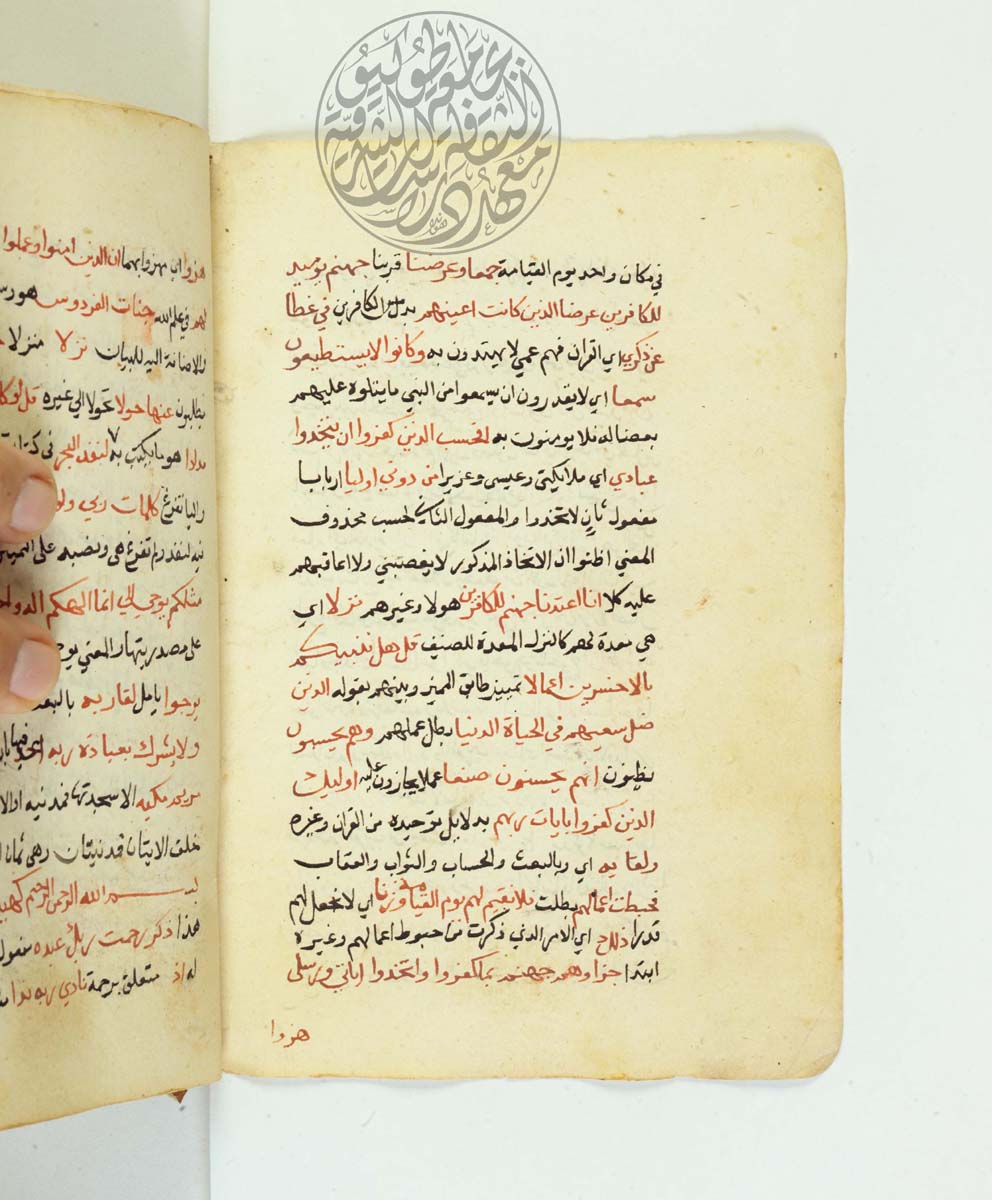 في مكان واحد يوم القيامة جمعا وعرضنا قربنا جهنم يوميذ
للكافرين عرضا الذين كانت اعينهم بدل من الكافرين في غطا
عن ذكري اي القران فهم عمي لا يهتدون به وكانوا لا يستطيعون
سمعا اي لا يقدرون ان يسمعوا من النبي ما يتلوه عليهم
بعضا له فلا يومنون به افحسب الذين كفروا ان يتخذوا
عبادي اي ملايكتي وعيسى وعزيرا من دوني اوليا اربابا
مفعول ثان لاتخذوا والمفعول الثاني لحسب محذوف
المعني اظنوا ان الاتخاذ المذكور لا يغضبني ولا اعاقبهم
عليه كلا انا اعتدنا جهنم للكافرين هولا وغيرهم نزلا اي
هي معدة لهم كالنزل المعدة للضيف قل هل ننبيكم
بالاخسرين اعمالا تمييز طابق المميز وبينهم بقوله الذين
ضل سعيهم في الحياة الدنيا بطل عملهم وهم يحسبون
يظنون انهم يحسنون صنعا عملا يجازون عليه اوليك
الذين كفروا بايات ربهم بدلايل توحيده من القران وغيره
ولقايه اي وبالبعث والحساب والثواب والعقاب
فحبطت اعمالهم بطلت فلا نقيم لهم يوم القيامة وزنا اي لا نجعل لهم
قدرا ذلك اي الامر الذي ذكرت من حبوط اعمالهم وغيره
ابتدا جزاوهم جهنم بما كفروا واتخذوا اياتي ورسلي
هزوا
هزوا اي مهزوا بهما ان الذين امنوا وعملوا
لهم في علم الله جنات الفردوس هو
والاضافة اليه للبيان نزلا منزلا
يطلبون عنها حولا تحولا الي غيره قل لو
مدادا هو ما يكتب به لنفد البحر في
واليا تفرغ كلمات ربي ولو
فيه لنفد ولم تفرغ هي ونصبه على التمييز
مثلكم يوحي الي انما الهكم اله واحد
على مصدريتها والمعني
يرجوا يامل لقا ربه بالبعث
ولا يشرك بعبادة ربه احدا
مريم مكيه الا سجدتها فمدنيه اوالا
خلف الايتان فمدنيتان وهي ثمان
بسم الله الرحمن الرحيم
هذا ذكر رحمت ربك عبده مفعول
له اذ متعلق برحمة نادي ربه ندا
معهد الثقافة والدراسات الشرقية
جامعة طوكيو